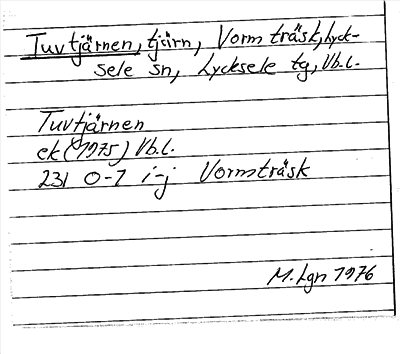 Tuvtjärnen, tjärn, Vormträsk, Lyck-
sele sn, Lycksele tg, Vb.l.
Tuvtjärnen
ek (1975) Vb.l.
231 0-1 i-j Vormträsk
M. Lgn 1976